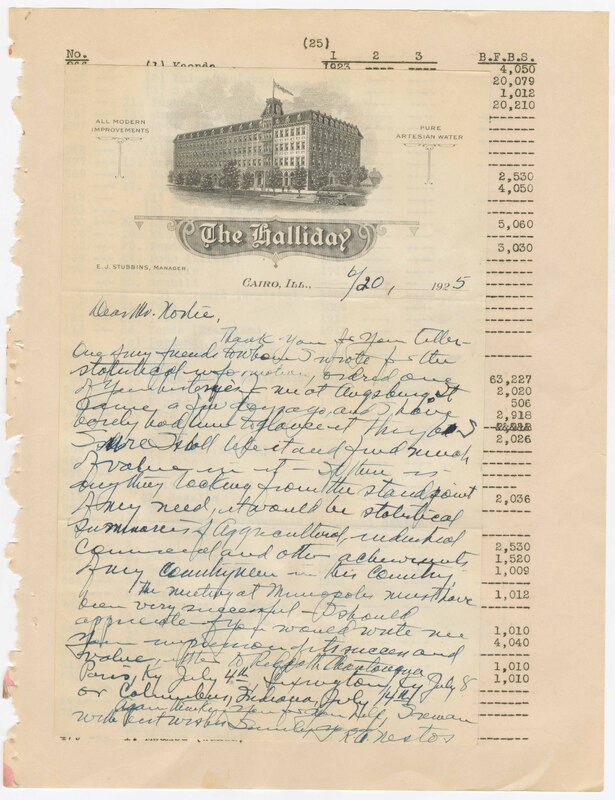 (25)
No. 1 2 3 B.F.B.S.
(1) Kaonde 1923 ---- ----
4,050
20,079
1,012
20,210
2,530
4,050
5,060
3,030
63,227
2,020
506
2,918
2,026
2,036
2,530
1,520
1,009
1,012
1,010
4,040
1,010
1,010
ALL MODERN
IMPROVEMENTS
PURE
ARTESIAN WATER
The Halliday
E. J. STUBBINS, MANAGER
CAIRO, ILL., 6/20, 1925
Dear Mr.
Thank you for your letter-
One of my friends to whom I wrote for the
statistical information, ordered one
of your me at Augsburg St
a few days ago and I have
barely had time to glance it
Sure I shall like it and find much
of value in it - If there is
anything lacking from the standpoint
of my need, it would be statistical
summaries of Agricultural, industrial
commercial and other achievements
of my countrymen in this Country.
The meeting at must have
been very successful - I should
appreciate if you would write me
your impression of its success and
value, - Chautauqua
Paris, Ky July 4th, Lexington Ky July 8
or Columbus, Indiana, July 14th
Again thanking you for your help, I remain
with best wishes Sincerely